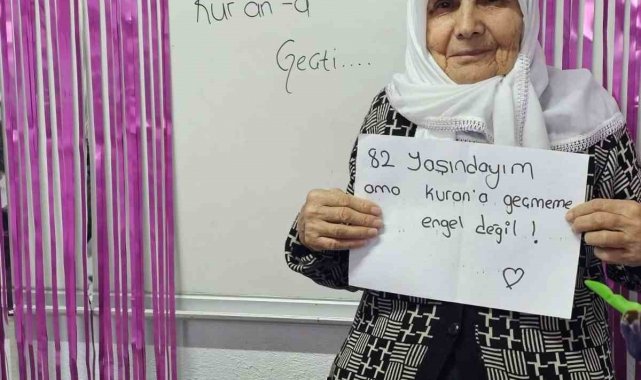 Kur'an-a
Geçti....
82 Yaşındayım
ama Kuran'a geçmeme
engel değil!